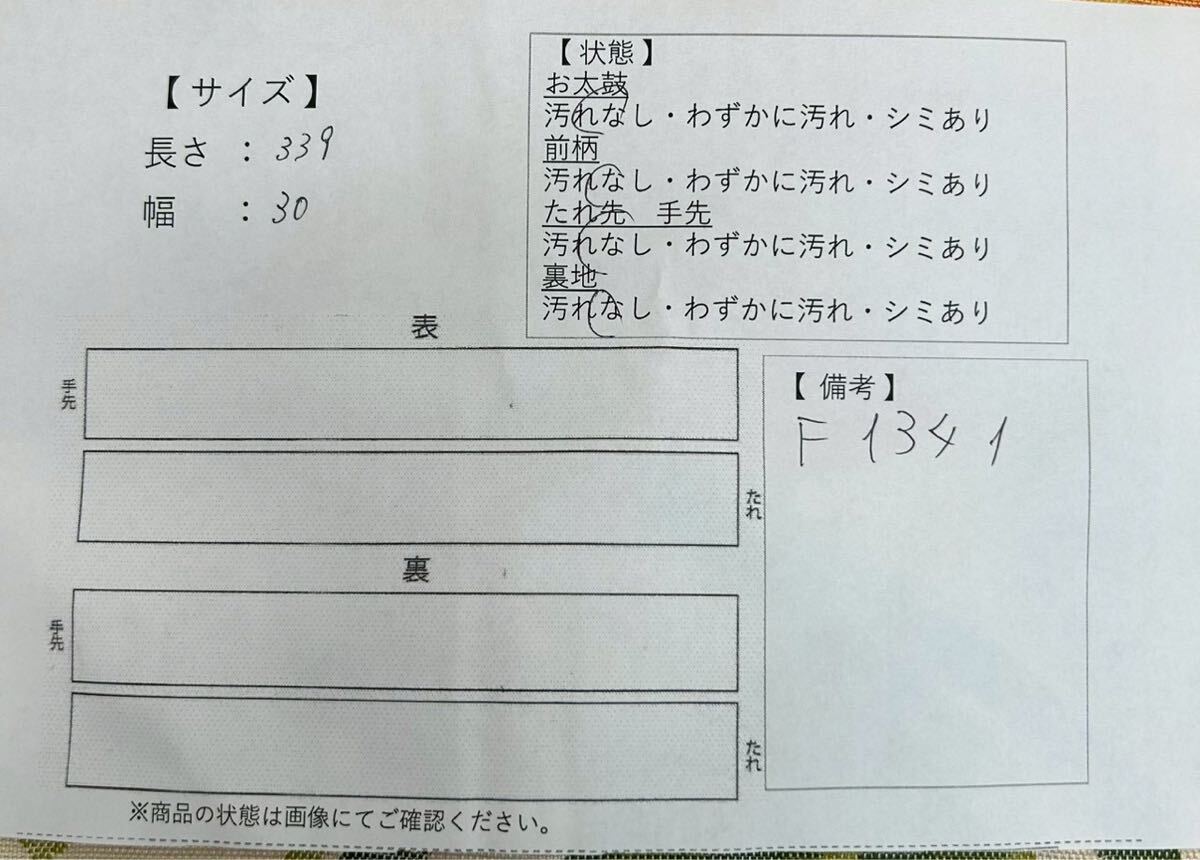 【 サイズ 】
長さ ： 339
幅 ： 30
【 状態 】
お太鼓
汚れなし・わずかに汚れ・シミあり
前柄
汚れなし・わずかに汚れ・シミあり
たれ先 手先
汚れなし・わずかに汚れ・シミあり
裏地
汚れなし・わずかに汚れ・シミあり
表
手先
たれ
裏
手先
たれ
【 備考 】
F 1341
※商品の状態は画像にてご確認ください。